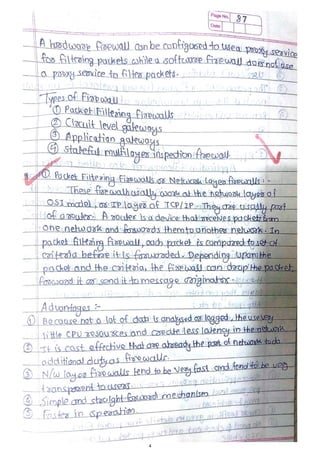 Page No. 87
Date
A hardware firewall can be configured to use a proxy service
for filtering packets while a software firewall does not use
a proxy service to filter packets.
Types of Firewall
① Packet Filtering firewalls
② Circuit level gateways
③ Application gateways
④ Stateful multilayer inspection firewall
① Packet Filtering Firewalls or Network Layer Firewalls :-
These firewall usually work at the network layer of
OSI model, or IP layer of TCP/IP. They are usually part
of a router. A router is a device that receives packet from
one network and forwards them to another network. In
packet filtering firewall, each packet is compared to set of
criteria before it is forwarded. Depending upon the
packet and the criteria, the firewall can drop the packet,
forward it or send it to message originator.
Advantages :-
① Because not a lot of data is analyzed or logged, they use very
little CPU resources and create less latency in the network.
② It is cost effective that are already the part of network to do
additional duty as firewalls.
③ N/w layer firewalls tend to be very fast and tend to be very
transparent to users
④ Simple and straight forward mechanism
⑤ Faster in operation.
4